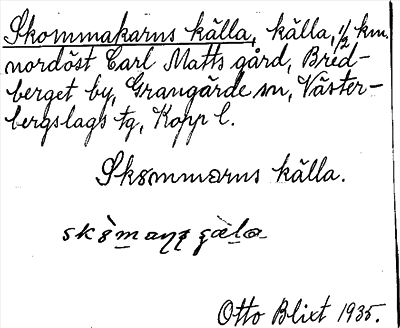 Skommakarns källa, källa, 1/2 km.
nordöst Carl Matts gård, Bred-
berget by, Grangärde sn, Väster-
bergslags tg, Kopp l.
Skommarns källa.
Otto Blixt 1935.